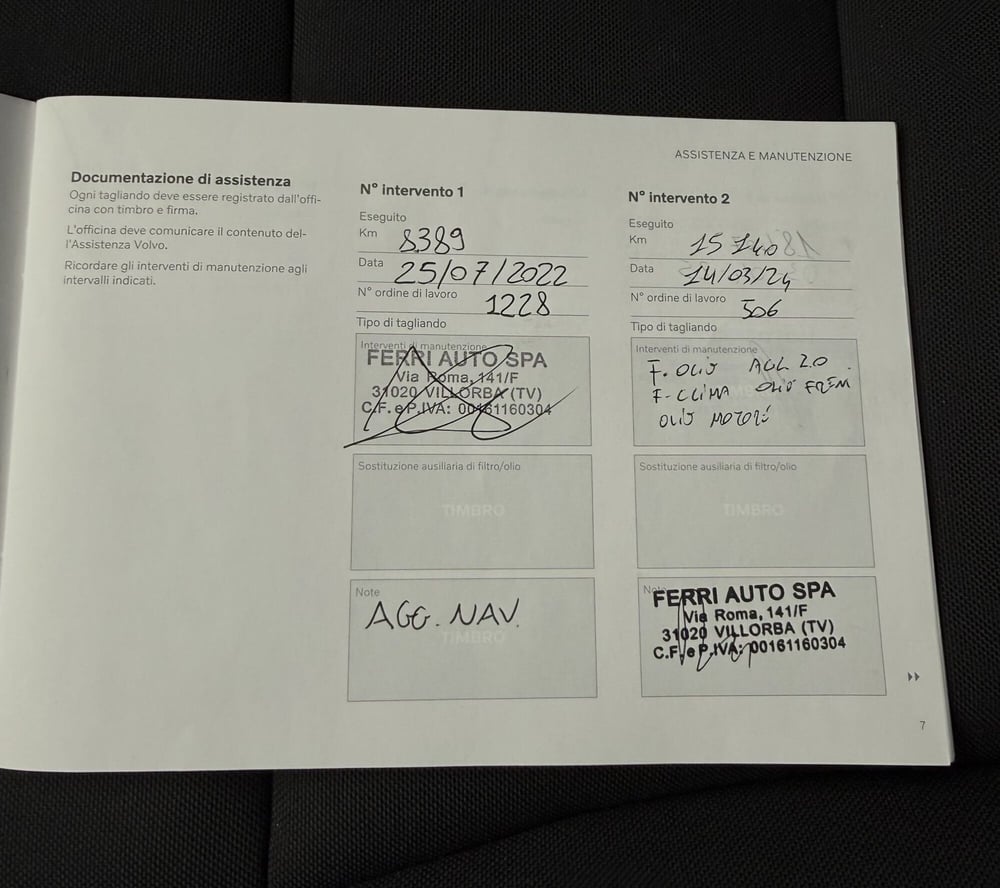 ASSISTENZA E MANUTENZIONE
Documentazione di assistenza
Ogni tagliando deve essere registrato dall'offi-
cina con timbro e firma.
L'officina deve comunicare il contenuto del-
l'Assistenza Volvo.
Ricordare gli interventi di manutenzione agli
intervalli indicati.
N° intervento 1
Eseguito
Km 8389
Data 25/07/2022
N° ordine di lavoro 1228
Tipo di tagliando
Interventi di manutenzione
FERRI AUTO SPA
Via Roma, 141/F
31020 VILLORBA (TV)
C.F. e P.IVA: 00161160304
Sostituzione ausiliaria di filtro/olio
TIMBRO
Note
AGG. NAV.
TIMBRO
N° intervento 2
Eseguito
Km 15140
Data 14/03/24
N° ordine di lavoro 506
Tipo di tagliando
Interventi di manutenzione
F. OLIO AGG 2.0
F. CLIMA OLIO FREM
OLIO MOTORE
Sostituzione ausiliaria di filtro/olio
TIMBRO
Note
FERRI AUTO SPA
Via Roma, 141/F
31020 VILLORBA (TV)
C.F. e P.IVA: 00161160304
7